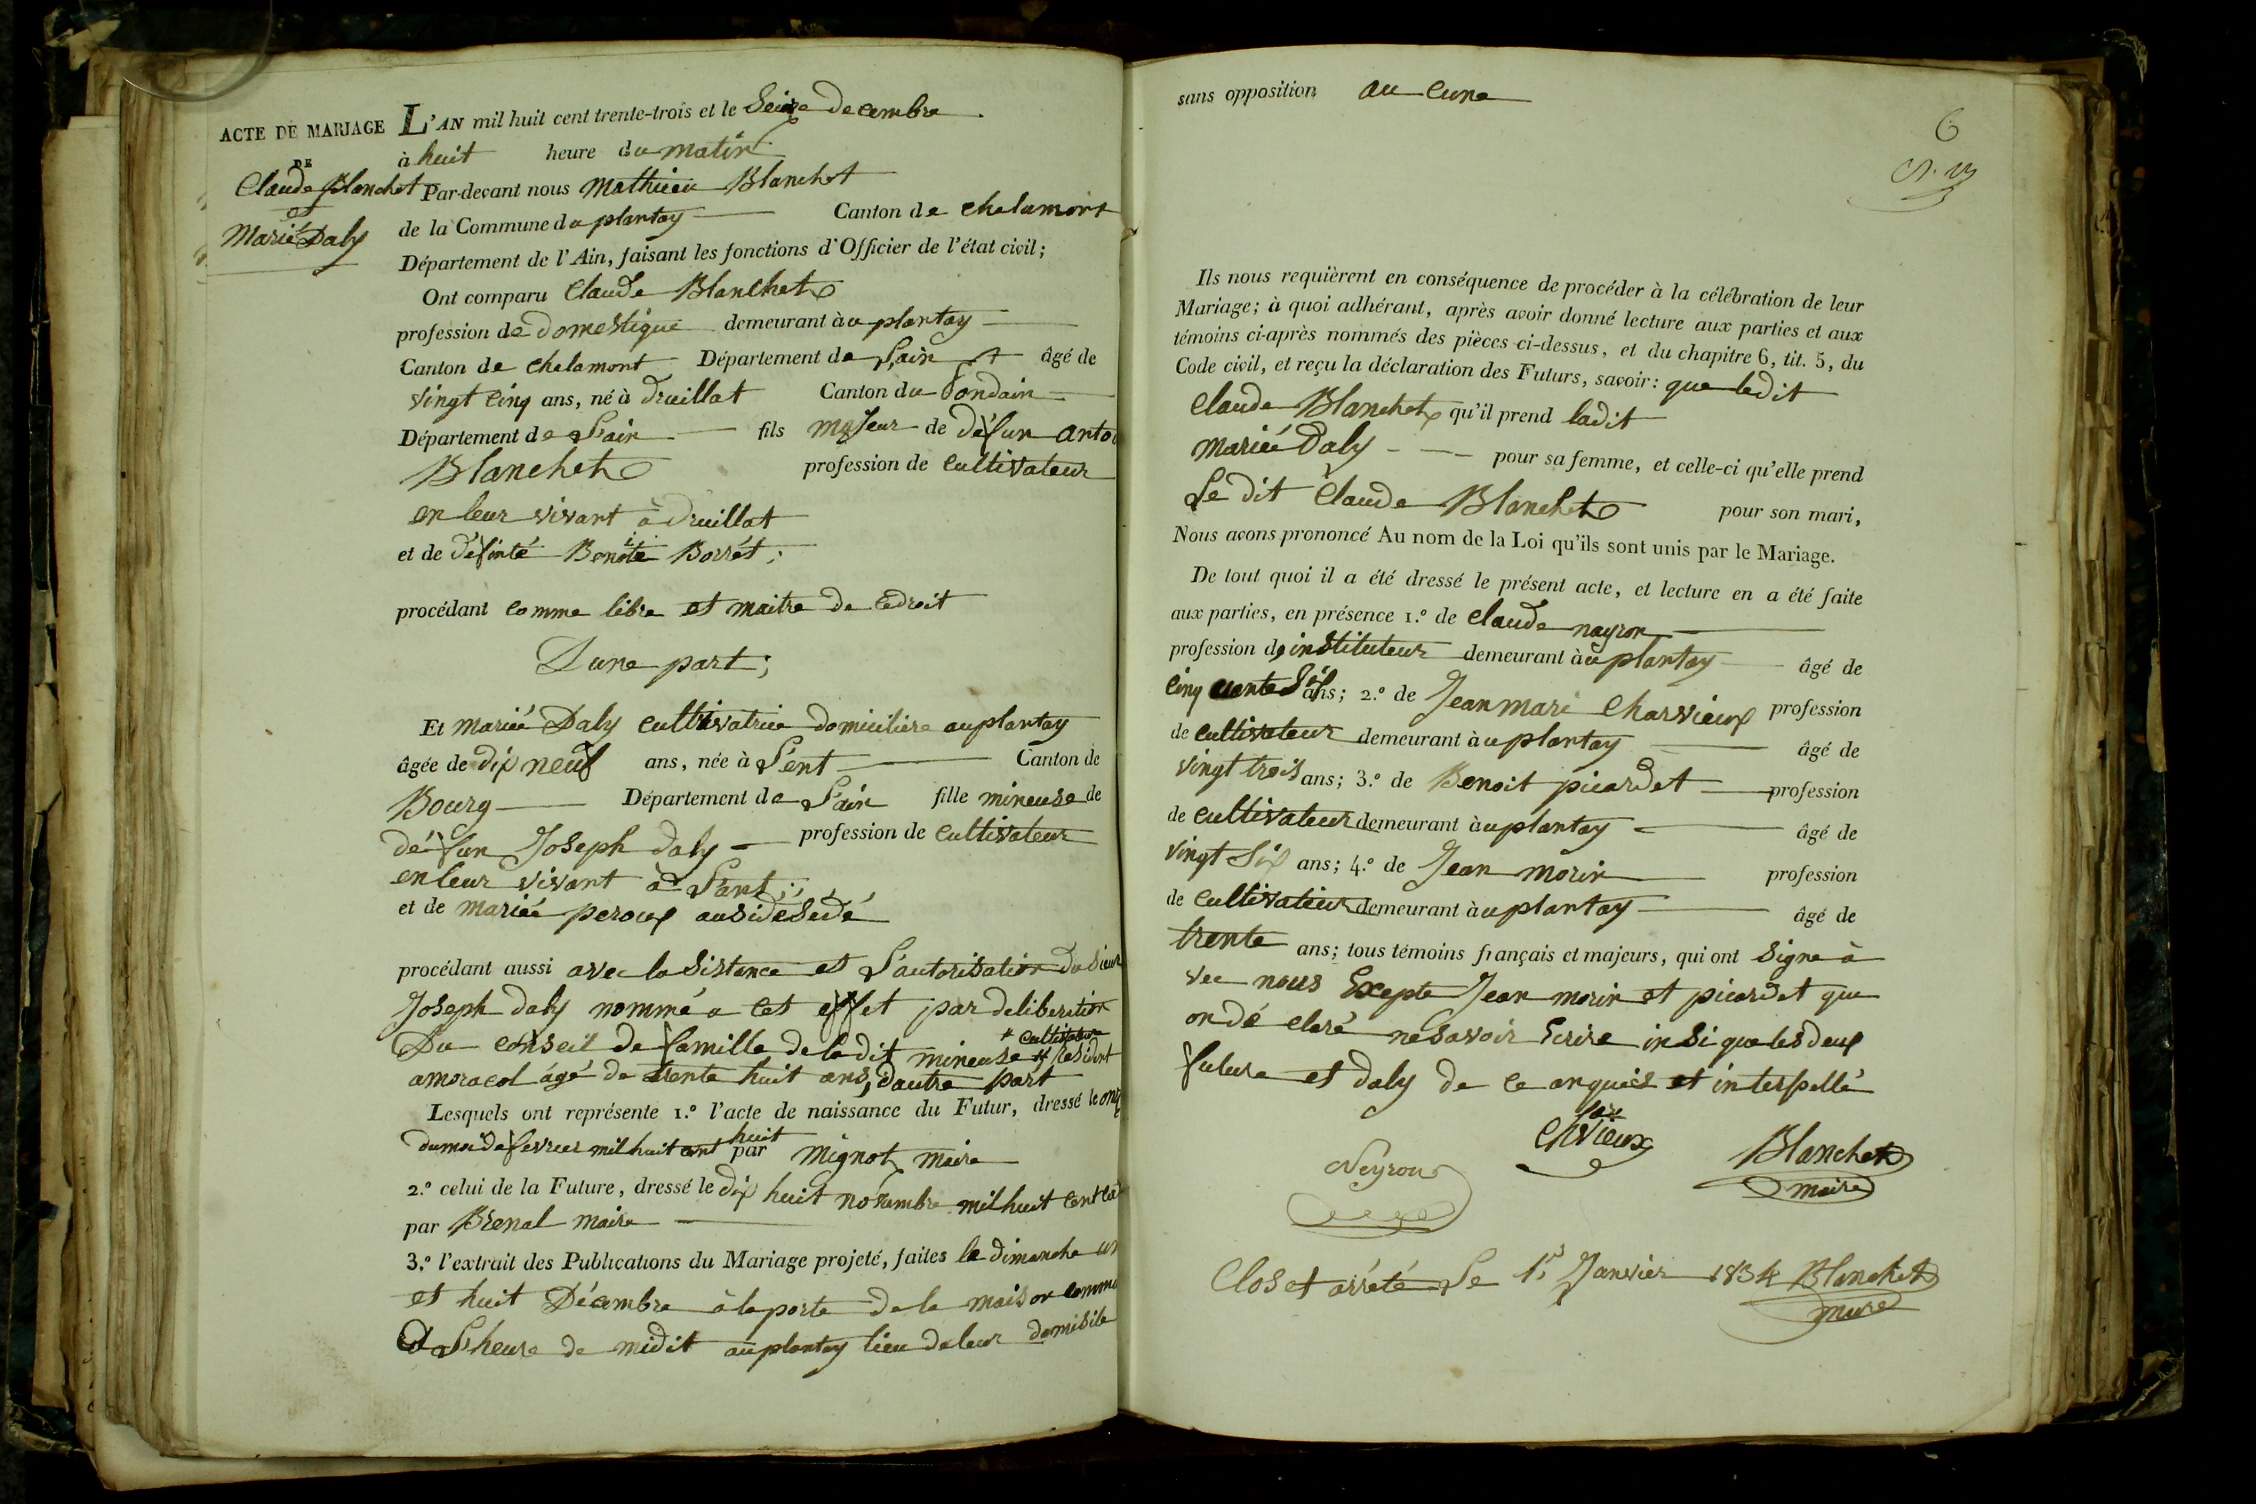 ACTE DE MARIAGE
DE
Claude Blanchet
et
Mariè Daly
L'AN mil huit cent trente-trois et le Seize decembre
à huit heure du matin
Par-devant nous mathieu Blanchet
de la Commune du plantay Canton de chalamont
Département de l'Ain, faisant les fonctions d'Officier de l'état civil;
Ont comparu Claude Blanchet
profession de domestique demeurant àu plantay
Canton de chalamont Département de L'ain âgé de
vingt cinq ans, né à druillat Canton du Pondain
Département de L'ain fils majeur de défun anto
Blanchet profession de cultivateur
en leur vivant à druillat
et de définté Benoite Borrét;
procédant comme libre et maitre de cedroit
D'une part;
Et mariéé Daly cultivatrice domiciliere auplantay
âgée de dix neuf ans, née à S'ent Canton de
Bourg Département de L'ain fille mineuse de
défun Joseph daly profession de cultivateur
en leur vivant à S'ant;
et de mariéé peroux ausidésédé
procédant aussi avec la Sistance et L'autorisation du sieur
Joseph daly nommé a cet effet par deliberation
Du conseil de famille de la dit mineuse # résident
# cultivateur
amoracol âgé de trente huit ans; d'autre part
Lesquels ont représente 1.º l'acte de naissance du Futur, dressé le onz
du moi de fevrier mil huit cent huit par mignot maire
2.º celui de la Future, dressé le dix huit novembre mil huit cent
par Brenal maire
3.º l'extrait des Publications du Mariage projeté, faites le dimanche un
et huit Décembre à la porte de la maison commu
à L'heure de midit au plantay lieu de leur domisile
sans opposition au cune
6
Ils nous requièrent en conséquence de procéder à la célébration de leur
Mariage; à quoi adhérant, après avoir donné lecture aux parties et aux
témoins ci-après nommés des pièces ci-dessus, et du chapitre 6, tit. 5, du
Code civil, et reçu la déclaration des Futurs, savoir: que ledit
Claude Blanchet qu'il prend ladit
mariéé Daly pour sa femme, et celle-ci qu'elle prend
Le dit Claude Blanchet pour son mari,
Nous avons prononcé Au nom de la Loi qu'ils sont unis par le Mariage.
De tout quoi il a été dressé le présent acte, et lecture en a été faite
aux parties, en présence 1.º de Claude nayron
profession de instituteur demeurant àu plantay âgé de
cinq uante Six ans; 2.º de Jean mari Charvieux profession
de cultivateur demeurant àu plantay âgé de
vingt trois ans; 3.º de Benoit picardet profession
de cultivateur demeurant àu plantay âgé de
vingt Six ans; 4.º de Jean morin profession
de cultivateur demeurant àu plantay âgé de
trente ans; tous témoins français et majeurs, qui ont signe à
vec nous Excepte Jean morin et picardet que
on dé claré nesavoir Ecrire insi que les deux
future et daly de ce anquiés et interpellé
Neyron
Charvieux
Blanchet
maire
Clos et arrété Le 1er Janvier 1834 Blanchet
maire